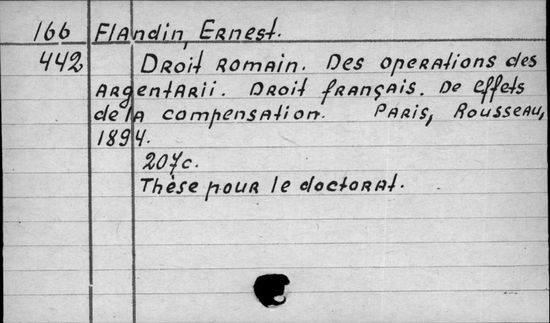 166 Flandin, Ernest.
442 Droit romain. Des operations des
argentarii. Droit français. De effets
de la compensation. Paris, Rousseau,
1894.
207c.
Thèse pour le doctorat.